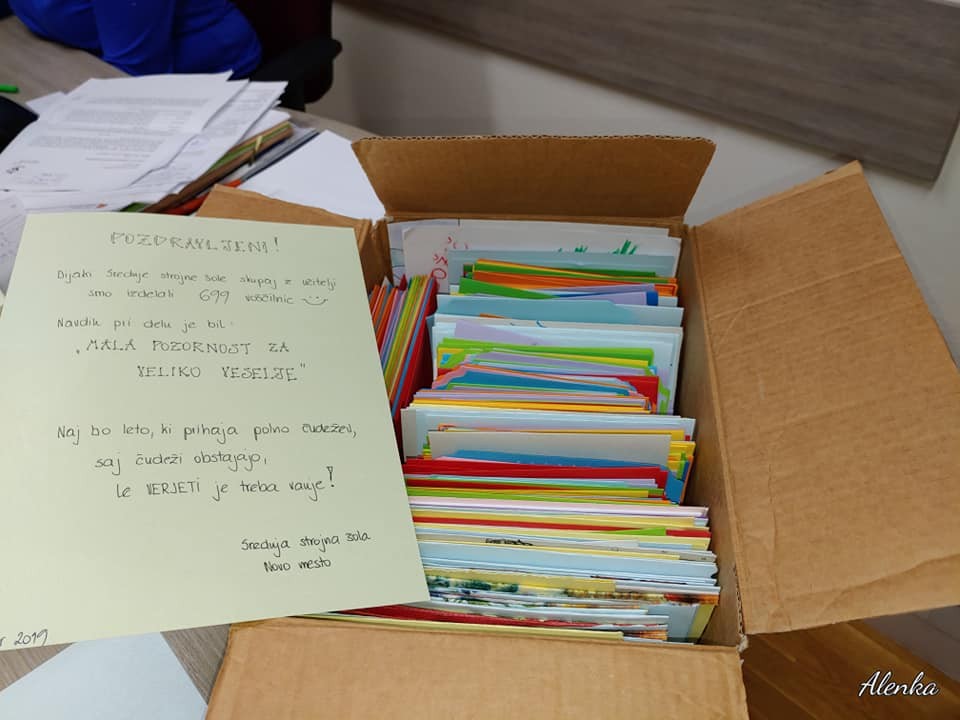 POZDRAVLJENI!
Dijaki Srednje strojne šole skupaj z učitelji
smo izdelali 699 voščilnic
Navdih pri delu je bil:
"MALA POZORNOST ZA
VELIKO VESELJE"
Naj bo leto, ki prihaja polno čudežev,
saj čudeži obstajajo,
le VERJETI je treba vanje!
Srednja strojna šola
Novo mesto
r 2019
Alenka